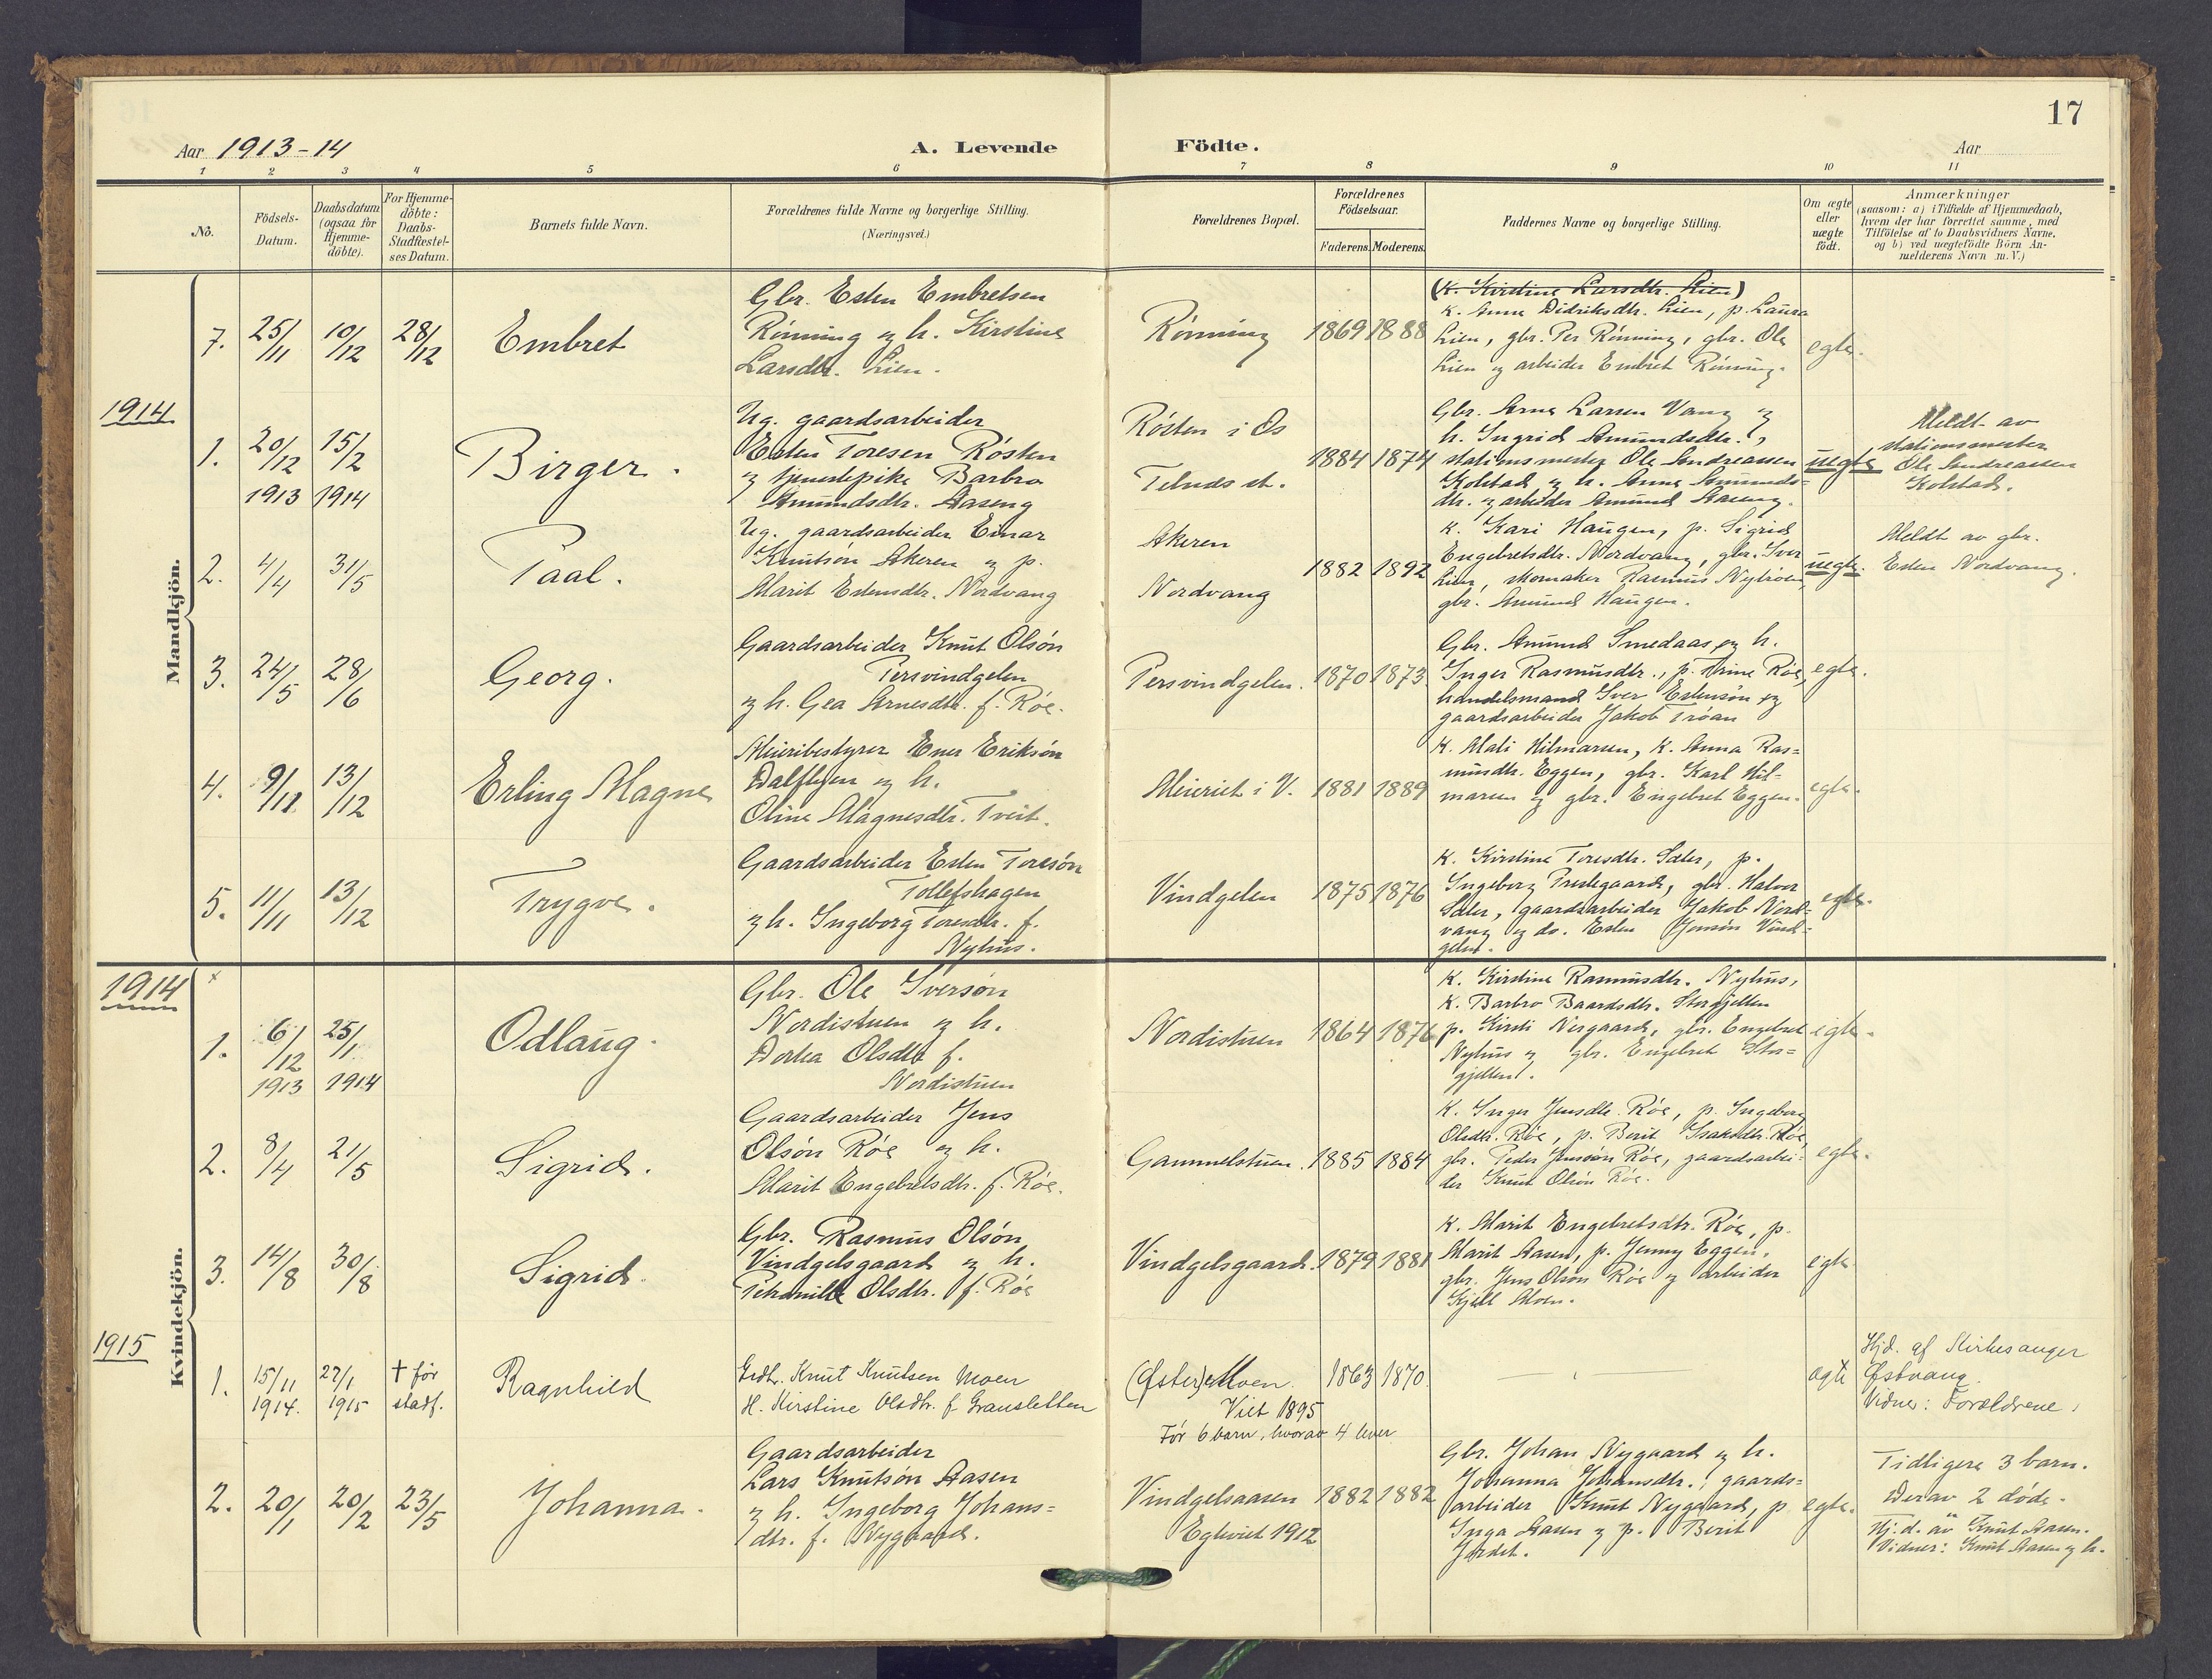 17
Aar 1913-14
A. Levende
Födte.
Aar
1 2 3 4 5 6 7 8 9 10 11
No.
Födsels-
Datum.
Daabsdatum
(ogsaa for
Hjemme-
döbte).
For Hjemme-
döbte:
Daabs-
Stadfæstel-
ses Datum.
Barnets fulde Navn.
Forældrenes fulde Navne og borgerlige Stilling.
(Næringsvei.)
Forældrenes Bopæl.
Forældrenes
Födselsaar.
Faderens. Moderens.
Faddernes Navne og borgerlige Stilling.
Om ægte
eller
uægte
födt.
Anmærkninger
(saasom: a) i Tilfælde af Hjemmedaab,
hvem der har forrettet samme, med
Tilföielse af to Daabsvidners Navne,
og b) ved uægtefödte Börn An-
melderens Navn m. V.)
Mandkjön.
7. 25/11 10/12 28/12 Embret
Gbr. Esten Embretsen
Rønning og h. Kirstine
Larsdtr. Lien.
Rønning 1869 1888
(K. Kirstine Larsdtr. Lien)
K. Anne Didriksdtr. Lien, p. Laura
Lien, gbr. Per Rønning, gbr. Ole
Lien og arbeider Embret Rønning.
egte.
1914.
1. 20/12 1913 15/2 1914 Birger.
Ug. gaardsarbeider
Esten Toresen Røsten
og tjenestepike Barbro
Amundsdtr. Aaseng
Røsten i Os
Telnæs st.
1884 1874
Gbr. Arne Larsen Vang og
h. Ingrid Amundsdtr.,
stationsmester Ole Andreassen
Kolstad og h. Anne Amunds-
dtr. og arbeider Amund Aaseng.
uegte
Meldt av
stationsmester
Ole Andreassen
Kolstad.
2. 4/4 31/5 Paal.
Ug. gaardsarbeider Einar
Knutsön Akeren og p.
Marit Estensdtr. Nordvang
Akeren
Nordvang
1882 1892
K. Kari Haugen, p. Sigrid
Engebretsdtr. Nordvang, gbr. Iver
Lien, skomaker Rasmus Nytrøen,
gbr. Amund Haugen.
uegte.
Meldt av gbr.
Esten Nordvang.
3. 24/5 28/6 Georg.
Gaardsarbeider Knut Olsön
Persvindgelen
og h. Gea Arnesdtr. f. Røe.
Persvindgelen. 1870 1873.
Gbr. Amund Smedaas og h.
Inger Rasmusdtr., p. Trine Røe,
handelsmand Iver Estensön og
gaardsarbeider Jakob Trøan
egte.
4. 9/11 13/12 Erling Magne
Meieribestyrer Ener Eriksön
Dalflyen og h.
Oline Magnesdtr. Tveit.
Meieriet i V. 1881 1889
K. Mali Hilmarsen, K. Anna Ras-
musdtr. Eggen, gbr. Karl Hil-
marsen og gbr. Engebret Eggen.
egte.
5. 11/11 13/12 Trygve.
Gaardsarbeider Esten Toresön
Tollefshagen
og h. Ingeborg Toresdtr. f.
Nyhus.
Vindgelen 1875 1876
K. Kirstine Toresdtr. Sæter, p.
Ingeborg Prestegaard, gbr. Halvor
Sæter, gaardsarbeider Jakob Nord-
vang og do. Esten Jonsön Vind-
gelen.
egte.
Kvindekjön.
1914
1. 6/12 1913 25/1 1914 Odlaug.
Gbr. Ole Iversön
Nordistuen og h.
Dortea Olsdtr f.
Nordistuen
Nordistuen 1864 1876
K. Kirstine Rasmusdtr. Nyhus,
K. Barbro Baardsdtr. Storgjelten
p. Kirsti Nergaard, gbr. Engebret
Nyhus og gbr. Engebret Stor-
gjelten.
egte.
2. 8/4 21/5 Sigrid.
Gaardsarbeider Jens
Olsön Røe og h.
Marit Engebretsdtr. f. Røe.
Gammelstuen. 1885 1884
K. Inger Jensdtr. Røe, p. Ingeborg
Olsdtr. Røe, p. Berit Isaksdtr. Røe,
gbr. Peder Jensön Røe, gaardsarbei-
der Knut Olsön Røe.
egte.
3. 14/8 30/8 Sigrid.
Gbr. Rasmus Olsön
Vindgelsgaard og h.
Petronille Olsdtr. f. Røe
Vindgelsgaard. 1879 1881
K. Marit Engebretsdtr. Røe, p.
Marit Aasen, p. Jenny Eggen,
gbr. Jens Olsön Røe og arbeider
Kjell Moen.
egte
1915
1. 15/11 1914. 27/1 1915 † før stadf. Ragnhild
Grdbr. Knut Knutsen Moen
H. Kirstine Olsdtr. f. Gransletten
(Øster) Moen. 1863 1870.
Viet 1895
Før 6 barn, hvorav 4 lever
ægte
Hjd. af Kirkesanger
Østvang.
Vidner: Forældrene.
2. 20/1 20/2 23/5 Johanna.
Gaardsarbeider
Lars Knutsön Aasen
og h. Ingeborg Johans-
dtr. f. Nygaard.
Vindgelsaasen 1882 1882
Egteviet 1912
Gbr. Johan Nygaard og h.
Johanna Johansdtr., gaards-
arbeider Knut Nygaard, p.
Inga Aasen og p. Berit
Jordet.
egte.
Tidligere 3 barn.
Derav 2 døde.
Hj.d. av Knut Aasen.
Vidner: Knut Aasen og h.